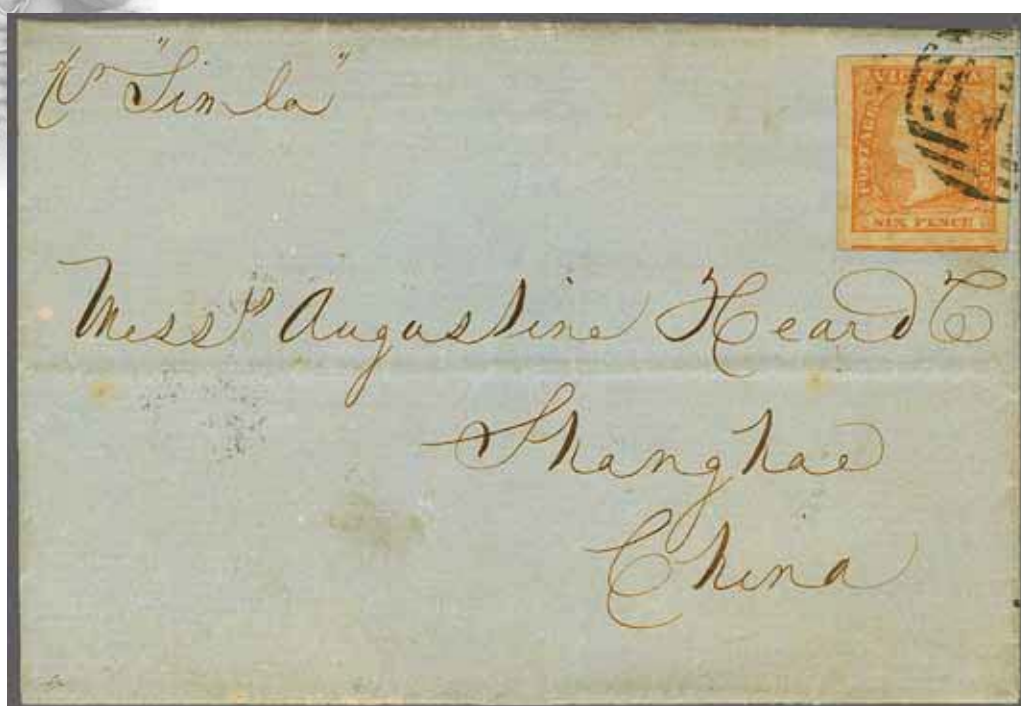 pr "Simla"
VICTORIA
POSTAGE
SIX PENCE
Messrs Augustine Heard & Co
Shanghae
China